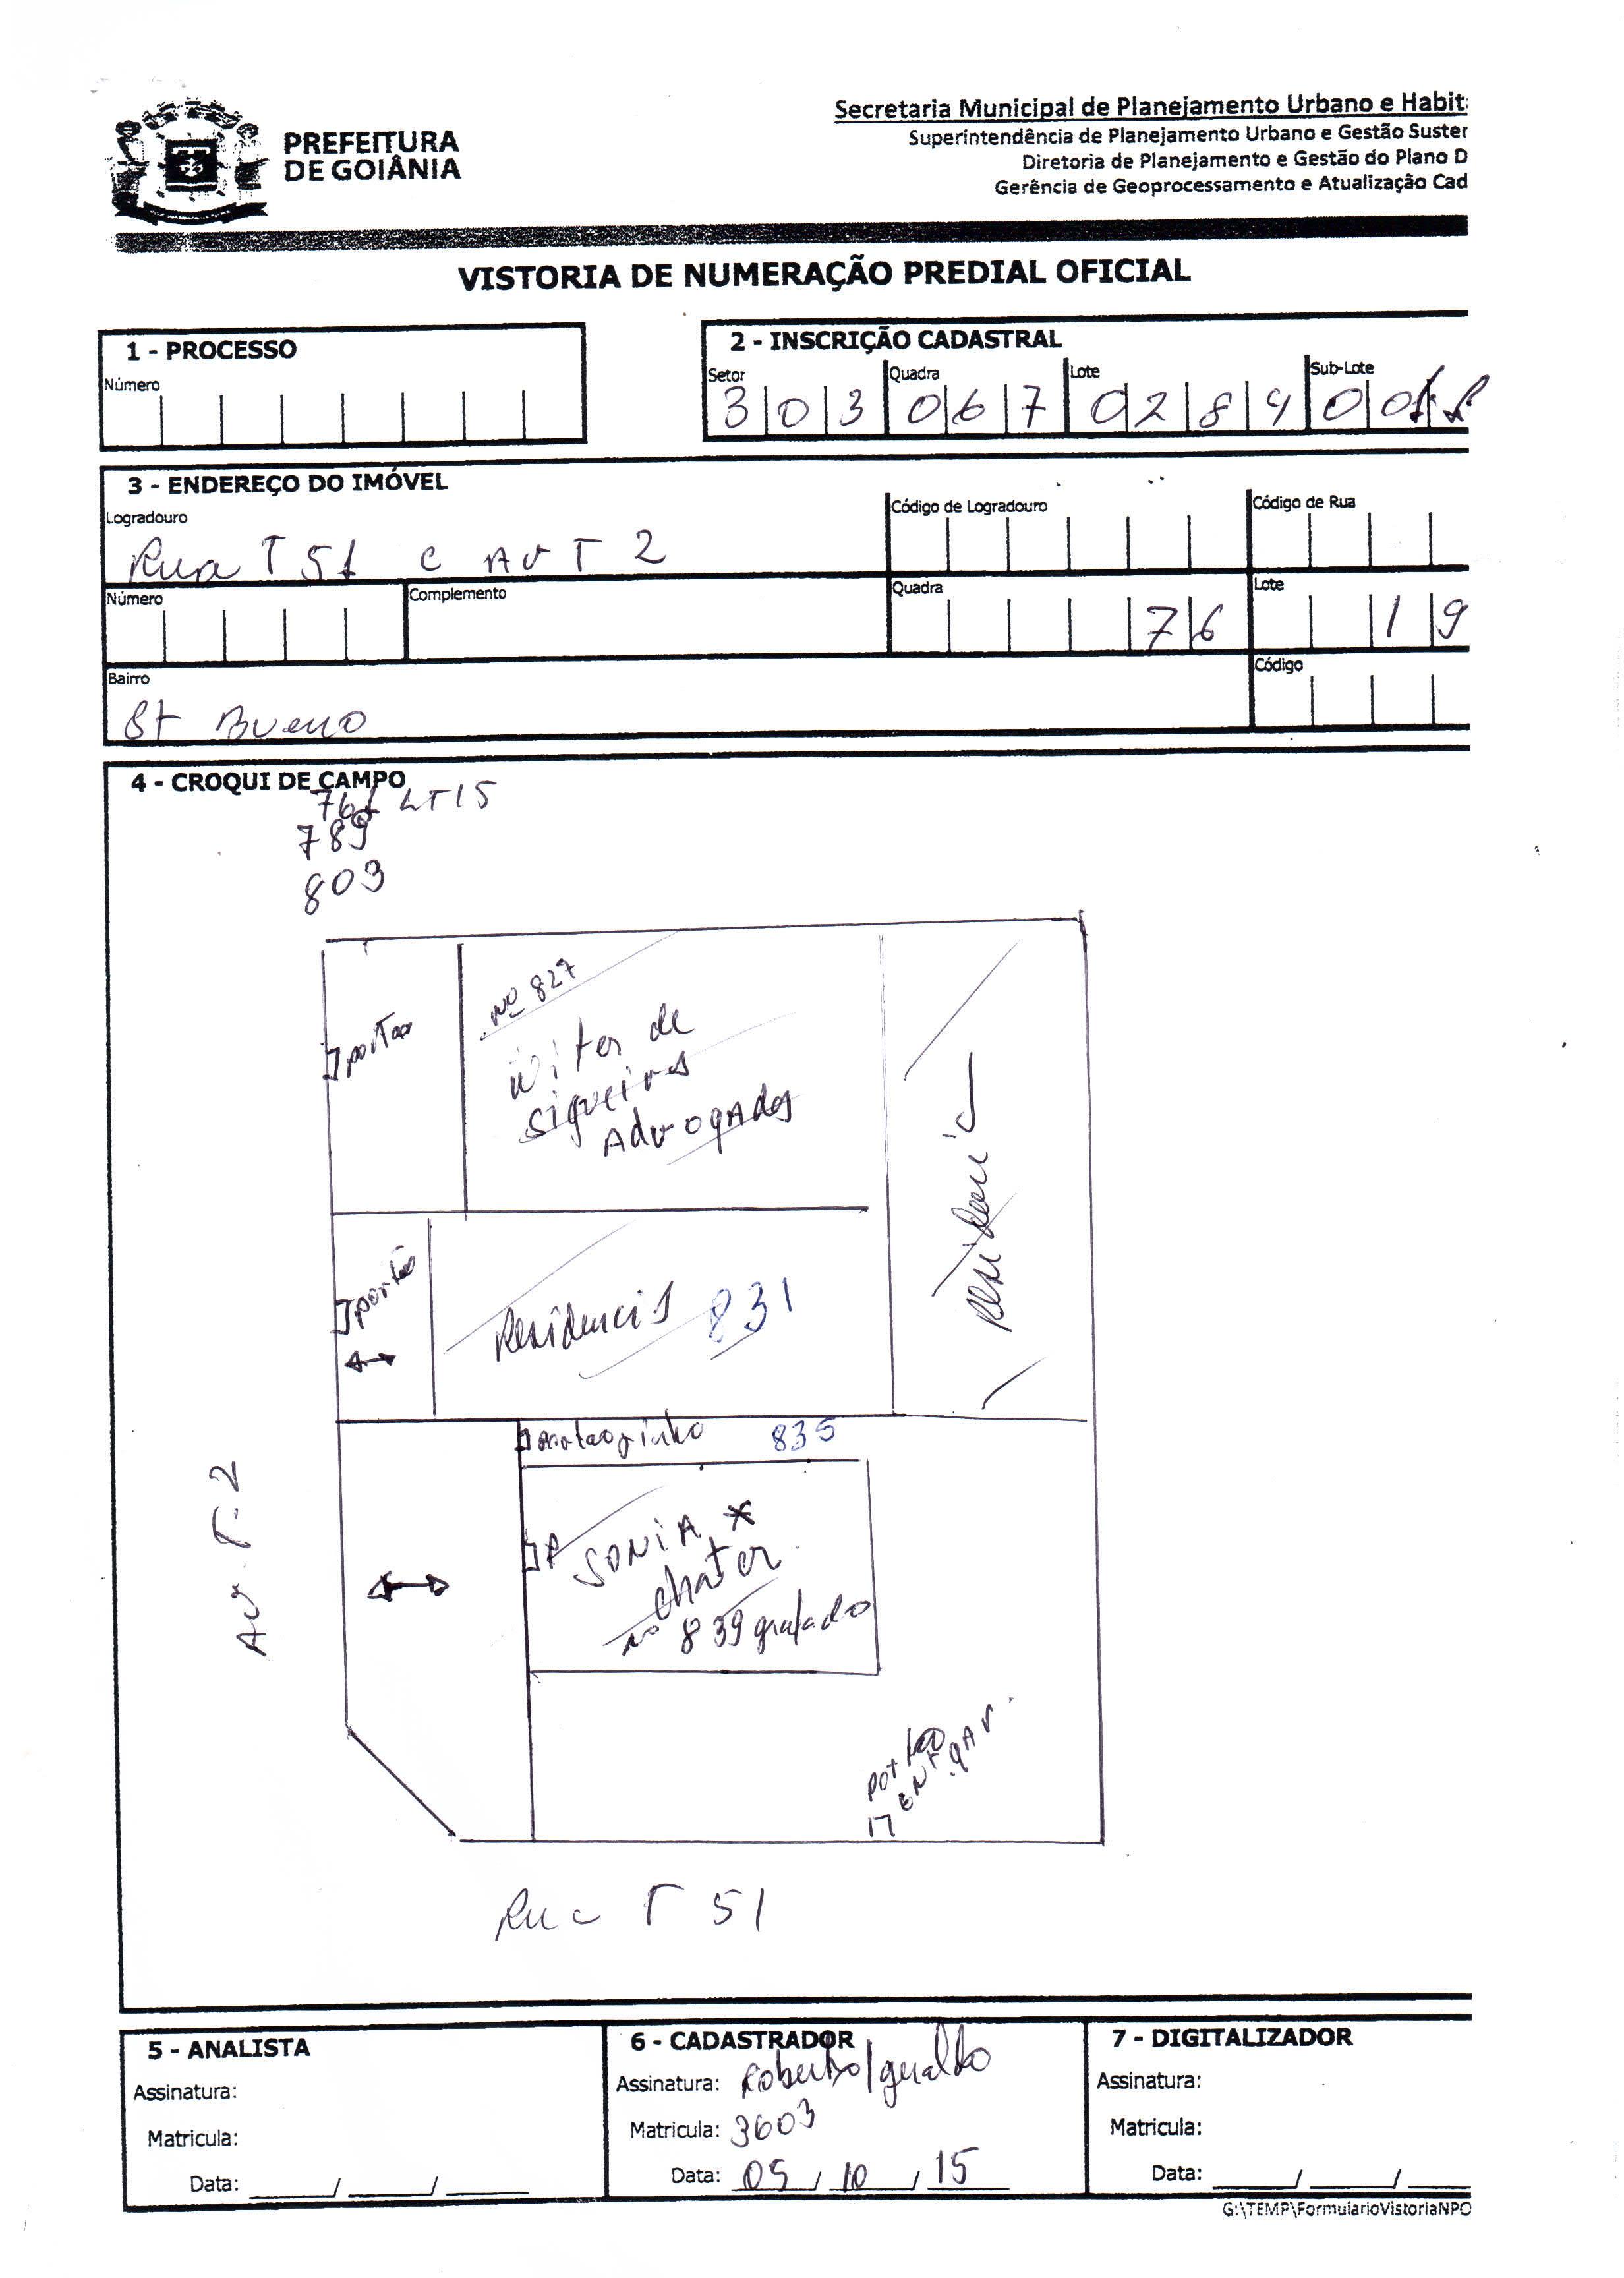 PREFEITURA
DE GOIÂNIA
Secretaria Municipal de Planejamento Urbano e Habit
Superintendência de Planejamento Urbano e Gestão Suster
Diretoria de Planejamento e Gestão do Plano D
Gerência de Geoprocessamento e Atualização Cad
VISTORIA DE NUMERAÇÃO PREDIAL OFICIAL
1 - PROCESSO
Número
2 - INSCRIÇÃO CADASTRAL
Setor Quadra Lote Sub-Lote
303 067 0284 00
3 - ENDEREÇO DO IMÓVEL
Logradouro Código de Logradouro Código de Rua
Rua T 51 c Av T 2
Número Complemento Quadra Lote
76 19
Bairro Código
St Bueno
4 - CROQUI DE CAMPO
761 LT15
789
803
nº 827
portao
Witer de
Siqueira
Advogados
residenci
portão
Residencia 831
portaozinho 835
P
SONIA *
chater
nº 839 grafado
portao
ENT gar.
Av. T-2
Rua T 51
5 - ANALISTA
Assinatura:
Matricula:
Data: ____/____/____
6 - CADASTRADOR
Assinatura: Roberto/geraldo
Matricula: 3603
Data: 05/10/15
7 - DIGITALIZADOR
Assinatura:
Matricula:
Data: ____/____/____
G:\TEMP\FormularioVistoriaNPO